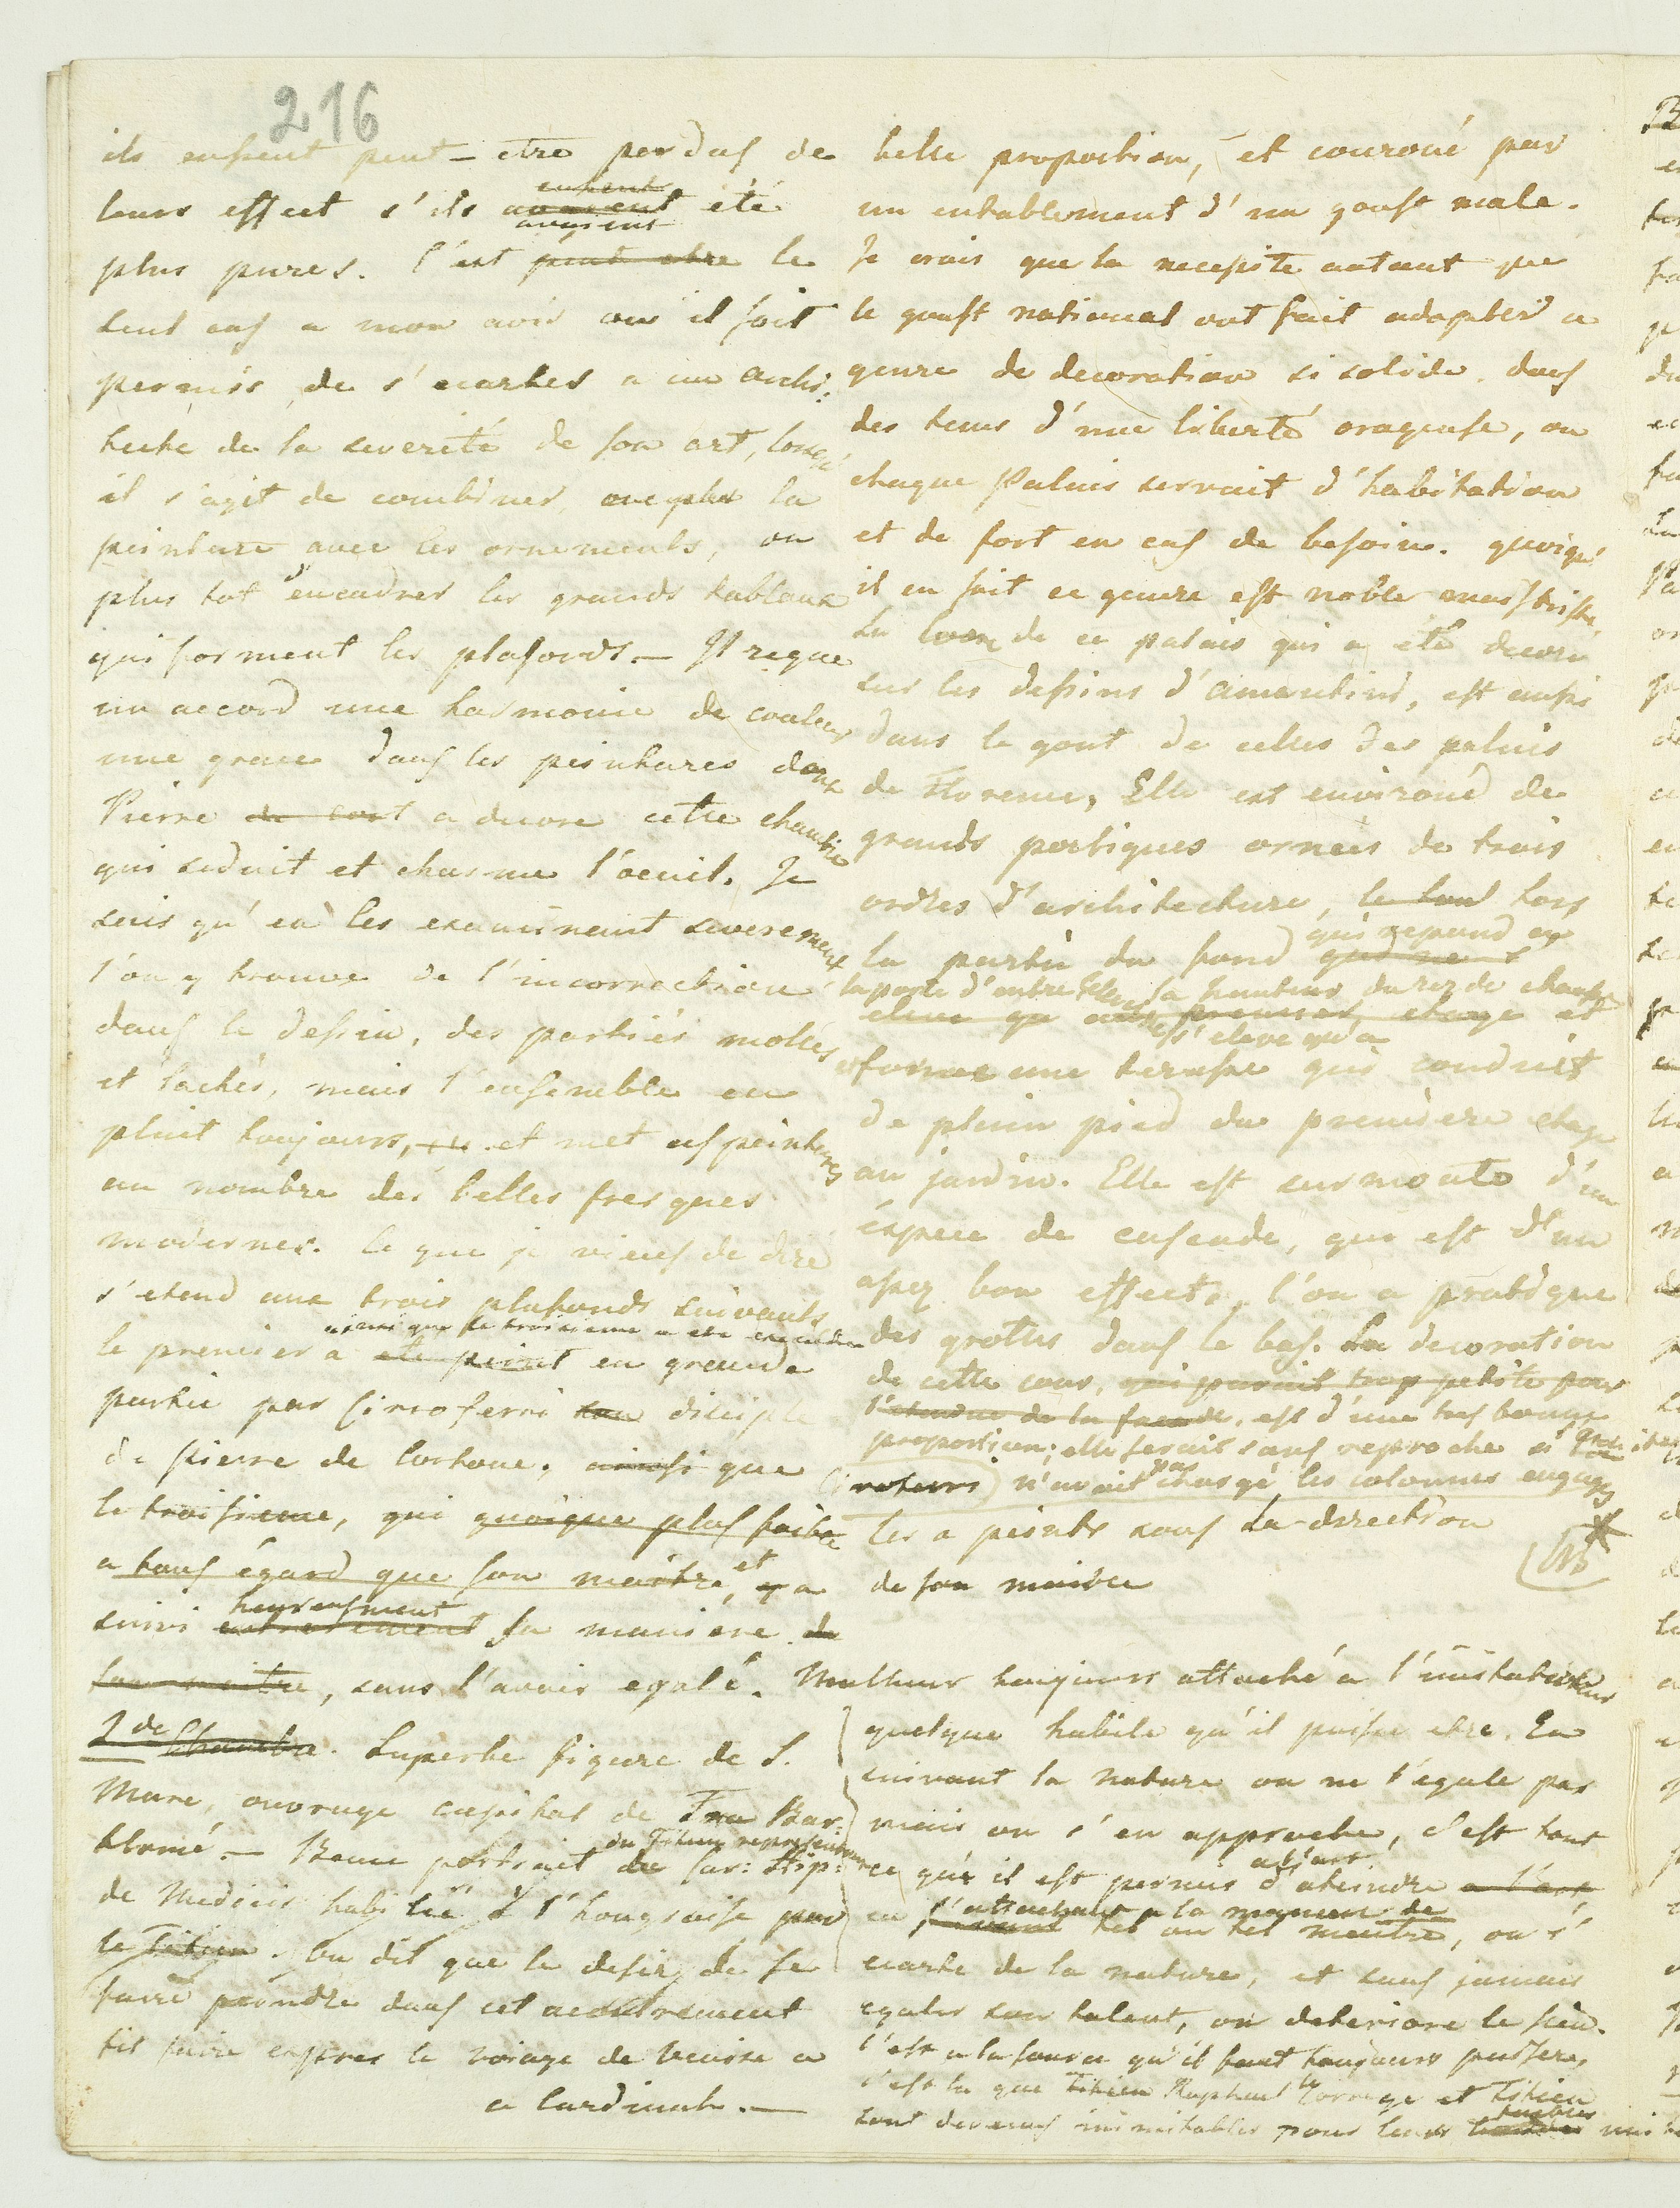 216
ils eussent peut-etre perdus de
leurs effect s'ils avoient eussent avoyient été
plus pures. C'est peut etre le
seul cas a mon avis ou il soit
permis, de s'ecarter a un archi-
tecte de la severité de son art, lorsqu'
il s'agit de combiner la
peinture avec les ornements, ou
plus tot d'encadrer les grands tableaux
qui forment les plafonds. — Il regne
un accord une harmonie de couleurs
une grace dans les peintures dont
Pierre de Cort a decore cette chambre
qui seduit et charme l'oeuil. Je
sais qu'en les examinant severement
l'on y trouve de l'incorrection
dans le dessin, des parties molles
et lachés, mais l'ensemble en
plait toujours, et met ces peintures
au nombre des belles fresques
modernes. Ce que je viens de dire
s'etend aux trois plafonds suivants
ainsi que le troisieme a ete executé
le premier a eté peint en grande
partie par Ciroferri son disciple
de Pierre de Cortone, ainsi que
le troisieme, qui quoique plus faible
a tous égard que son maitre, et y a
suivi heureusement entierement sa maniere de
son maitre, sans l'avoir egalé.
2de Chambre. Superbe figure de S.
Marc, ouvrage capital de Fra Bar-
tlomé. — Beau portrait du Titien representant de Car: Hip:
de Medicis habillé à l'hongroise par
le Titien. On dit que le desir de se
faire peindre dans cet accoutrement
fit faire expres le voiage de Venise a
ce Cardinal. —
belle proportion, et couroné par
un entablement d'un goust male.
Je crois que la necessite autant que
le goust national ont fait adopter ce
genre de decoration si solide, dans
des tems d'une liberté orageuse, ou
chaque Palais servait d'habitation
et de fort en cas de besoin. quoiqu'
il en soit ce genre est noble mais triste,
La cour de ce palais qui a été decoré
sur les dessins d'Amantini, est aussi
dans le gout de celles des palais
de Florence, Elle est environé de
grands portiques ornées de trois
ordres d'architecture, le tout hors
la partie du fond qui repond a qui ne s
la porte d'entrée la hauteur du rez de chaussé
eleve qu'au premier etage et
s'eleve qu'a
et forme une terasse qui conduit
de plain pied du premiere etage
au jardin. Elle est surmonté d'un
éspece de cascade, qui est d'un
assez bon effect, l'on a pratique
des grottes dans le bas. La decoration
de cette cour, qui parait trop petite pour
l'etendue de la facade, est d'une tres bonne
proportion; elle serait sans reproche si
(Ciroferri) n'avait pas chargé les colonnes engagés
les a peints sous la direction
de son maitre
NB *
Malheur toujours attaché a l'imitateur
quelque habile qu'il puisse etre. En
suivant la nature on ne l'egale pas
mais on s'en approche, c'est tout
ce qu'il est permis a l'art d'ateindre a l'art
en s'attachant a la maniere de
suivant tel ou tel maitre, on s'
ecarte de la nature, et sans jamais
egaler son talent, on deteriore le sien.
C'est a la source qu'il faut toujours puiser,
c'est la que Titien Raphael le Correge et Titien
sont devenus inimitables pour leurs faibles